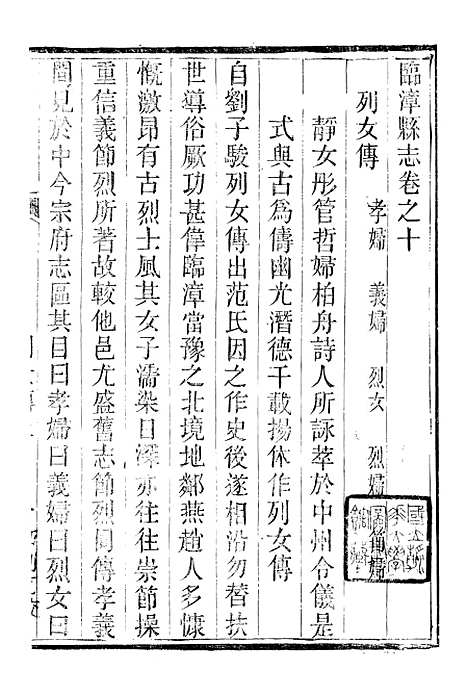 臨漳縣志卷之十
列女傳 孝婦 義婦 烈女 烈婦
靜女彤管哲婦柏舟詩人所詠萃於中州令儀是
式與古爲儔幽光潛德千載揚休作列女傳
自劉子駿列女傳出范氏因之作史後遂相沿勿替扶
世導俗厥功甚偉臨漳當豫之北境地鄰燕趙人多慷
慨激昂有古烈士風其女子濡染日深亦往往崇節操
重信義節烈所著故較他邑尤盛舊志簡烈同傳孝義
間見於中今宗府志區其目曰孝婦曰義婦曰烈女曰